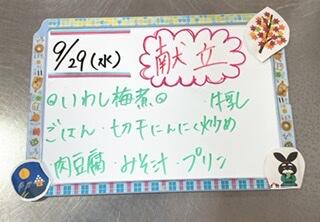 9/29(水)
献立
◎いわし梅煮◎ ・牛乳
ごはん・切干にんにく炒め
・肉豆腐・みそ汁・プリン